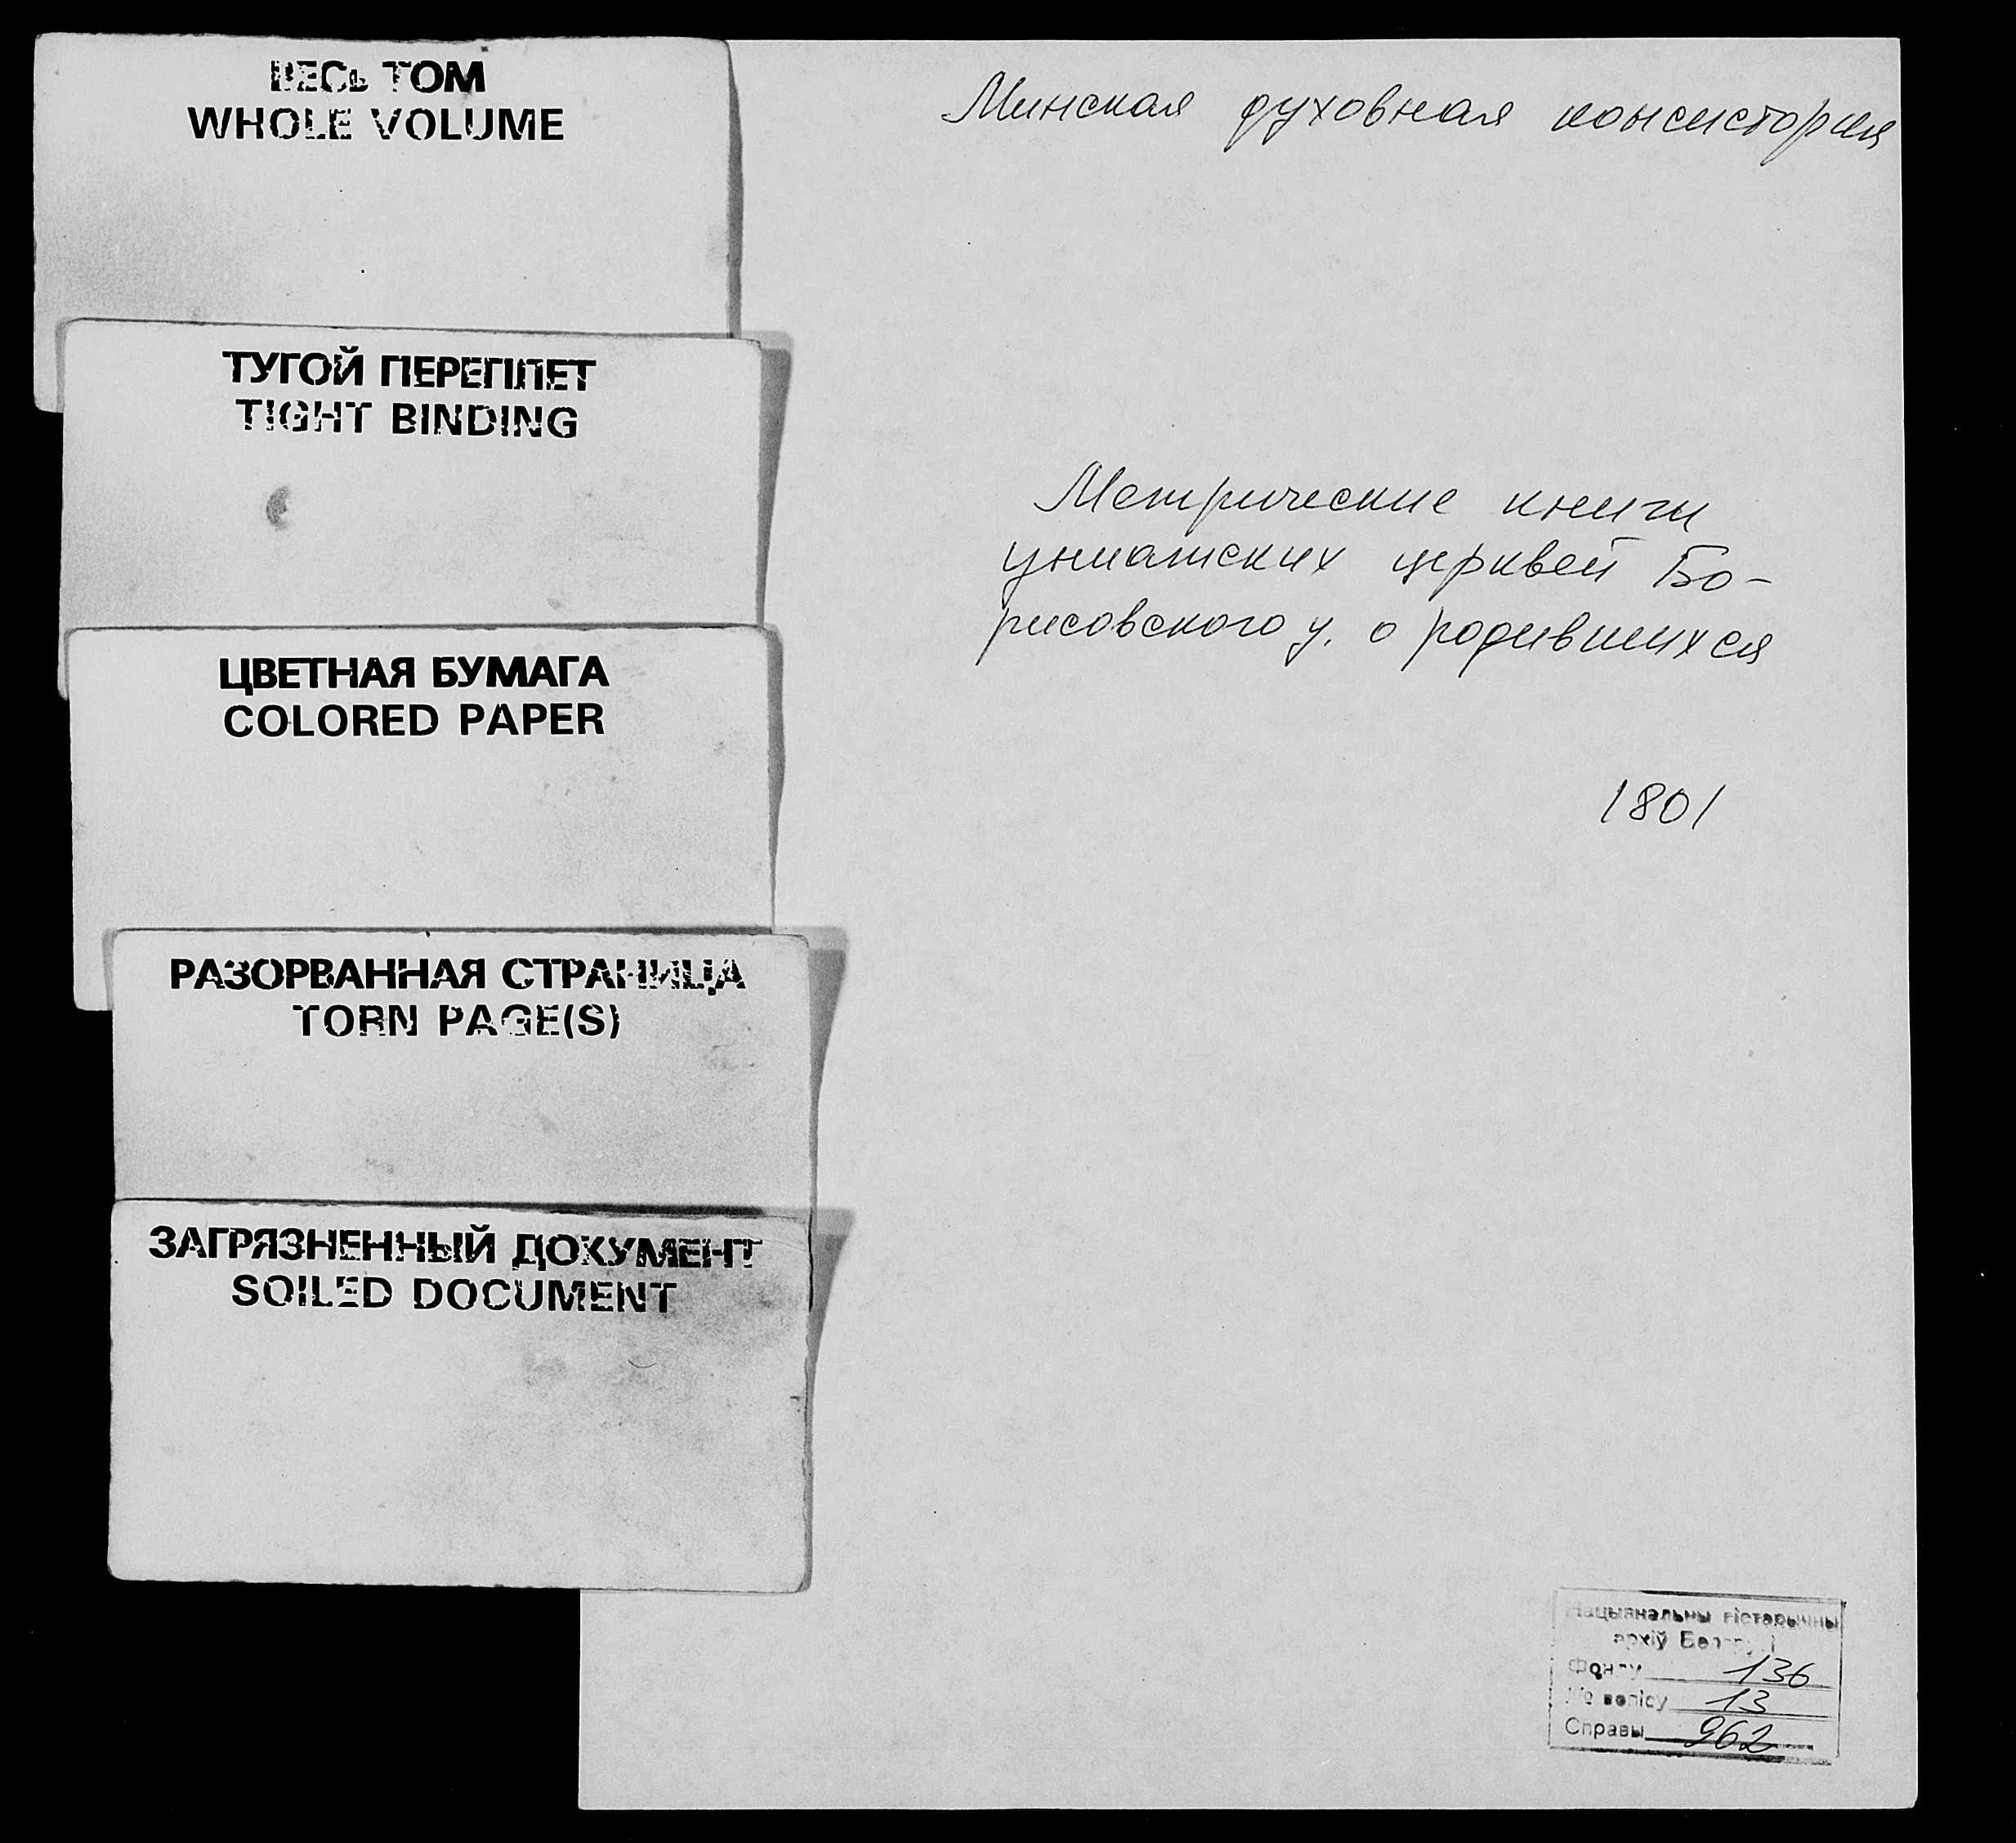 ВЕСЬ ТОМ
WHOLE VOLUME
ТУГОЙ ПЕРЕПЛЕТ
TIGHT BINDING
ЦВЕТНАЯ БУМАГА
COLORED PAPER
РАЗОРВАННАЯ СТРАНИЦА
TORN PAGE(S)
ЗАГРЯЗНЕННЫЙ ДОКУМЕНТ
SOILED DOCUMENT
Минская духовная консистория
Метрические книги
униатских церквей Бо-
рисовского у. о родившихся
1801
Нацыянальны гістарычны
архіў Беларусі
Фонду 136
№ вопісу 13
Справы 962